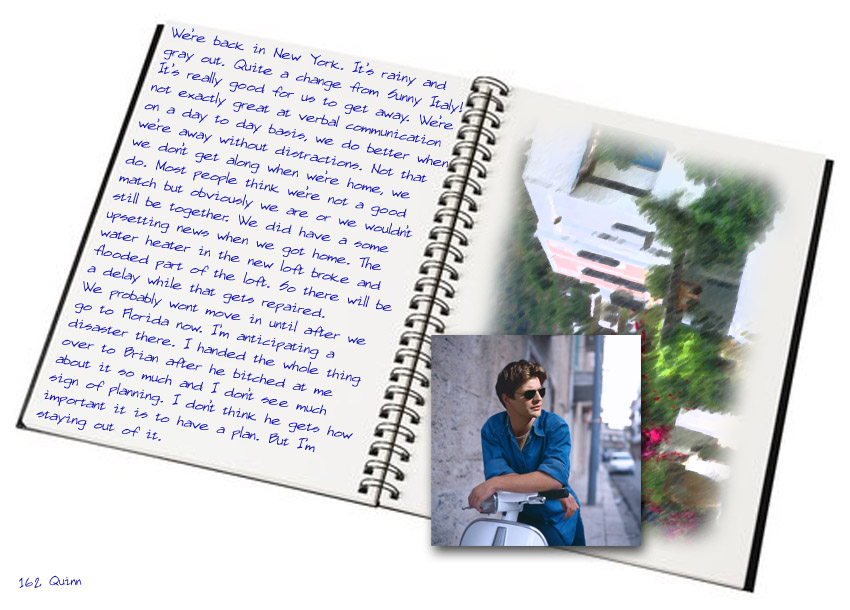 We're back in New York. It's rainy and
gray out. Quite a change from Sunny Italy!
It's really good for us to get away. We're
not exactly great at verbal communication
on a day to day basis, we do better when
we're away without distractions. Not that
we don't get along when we're home, we
do. Most people think we're not a good
match but obviously we are or we wouldn't
still be together. We did have a some
upsetting news when we got home. The
water heater in the new loft broke and
flooded part of the loft. So there will be
a delay while that gets repaired.
We probably wont move in until after we
go to Florida now. I'm anticipating a
disaster there. I handed the whole thing
over to Brian after he bitched at me
about it so much and I don't see much
sign of planning. I don't think he gets how
important it is to have a plan. But I'm
staying out of it.
162 Quinn